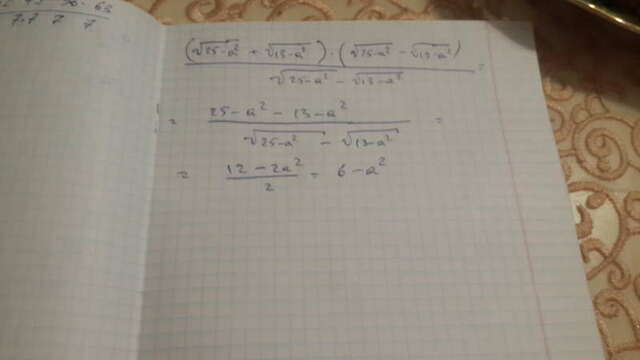 7.7 7 7
(√25-a² + √13-a²) · (√25-a² - √13-a²) =
√25-a² - √13-a²
= 25-a² - 13-a² =
√25-a² - √13-a²
= 12-2a² = 6-a²
2